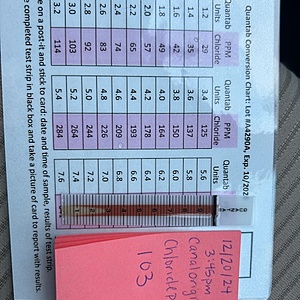 Quantab Conversion Chart: Lot #A4290A, Exp. 10/202
Quantab Units PPM Chloride Quantab Units PPM Chloride Quantab Units
1.2 29 3.4 125 5.6
1.4 35 3.6 137 5.8
1.6 42 3.8 150 6.0
1.8 49 4.0 164 6.2
2.0 57 4.2 178 6.4
2.2 65 4.4 193 6.6
2.4 74 4.6 209 6.8
2.6 83 4.8 226 7.0
2.8 92 5.0 244 7.2
3.0 103 5.2 264 7.4
3.2 114 5.4 284 7.6
e on a post-it and stick to card: date and time of sample, results of test strip.
e completed test strip in black box and take a picture of card to report with results.
12/20/24
3:45pm
Chloride
103